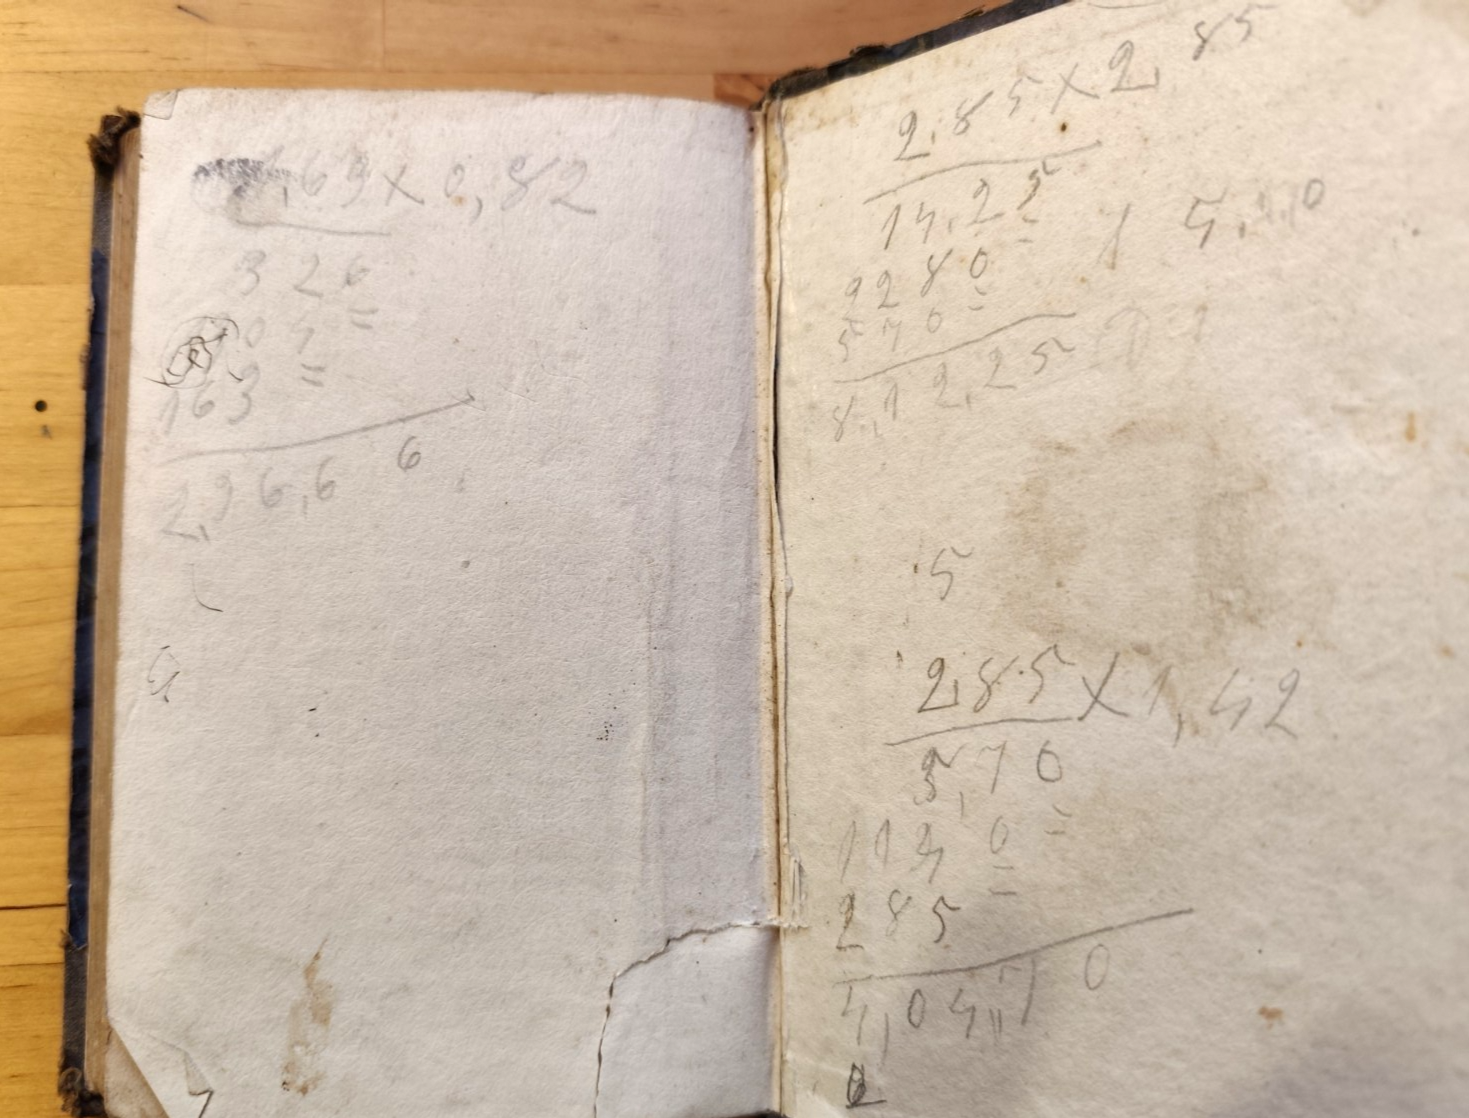 ,63 x 0,82
3 2 6
0 4
163
2,96,6 6
2,85 x 2,85
14,25
2280
570
8,12,25
5
2,85 x 1,42
5,70
1140
285
4,04,70